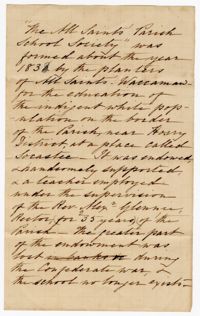 "The All Saints Parish
School Society" was
formed about the year
183 by the planters
of All Saints Waccamaw
for the education of
the indigent white pop-
ulation on the border
of the Parish, near Horry
District, at a place called
Socastee — It was endowed,
& handsomely supported,
& a teacher employed
under the supervision
of the Rev. Alexr Glennie,
Rector, for 35 years, of the
Parish — The greater part
of the endowment was
lost during
the Confederate war, &
the school no longer exists —